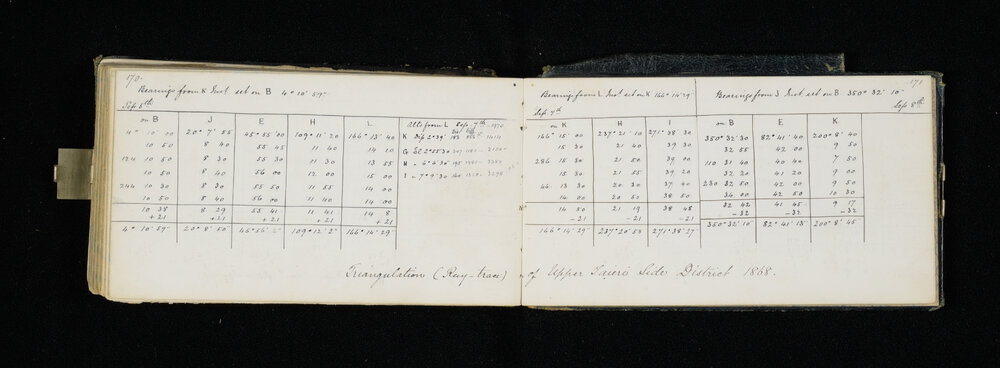 170.
Bearings from K Inst set on B 4° 10' 59"
Sep 8th
on B J E H L
4° 10' 00 20° 7' 55 45° 55' 00 109° 11' 20 166° 13' 40
10 50 8 40 55 45 11 40 14 10
124 10 50 8 30 55 30 11 30 13 55
10 50 8 40 56 00 12 00 15 00
244 10 30 8 30 55 50 11 55 14 00
10 50 8 40 56 00 11 40 14 00
10 38 8 29 55 41 11 41 14 8
+21 +21 +21 +21 +21
4° 10' 59" 20° 8' 50 45° 56' 2" 109° 12' 2" 166° 14' 29"
Alts from L Sep 7th 1870
K Dep 2° 39'
171
Bearings from L Inst set on K 166° 14' 29"
Sep 7th
on K H I
166° 15' 00 237° 21' 10 271° 38' 30
15 30 21 40 39 30
286 15 30 21 50 39 00
15 30 21 55 39 20
46 13 30 20 30 37 40
14 00 20 50 38 50
14 50 21 19 38 48
-21 -21 -21
166° 14' 29" 237° 20' 58 271° 38' 27"
Bearings from J Inst set on B 350° 32' 10"
Sep 8th
on B E K
350° 32' 30 82° 41' 40 200° 8' 40
32 55 42 00 9 50
110 31 40 40 40 7 50
32 20 41 20 9 00
230 32 50 42 00 9 50
34 00 42 50 10 30
32 42 41 45 9 17
-32 -32 -32
350° 32' 10" 82° 41' 13" 200° 8' 45"
Triangulation (Ray-trace) of Upper Taieri Side District 1868.